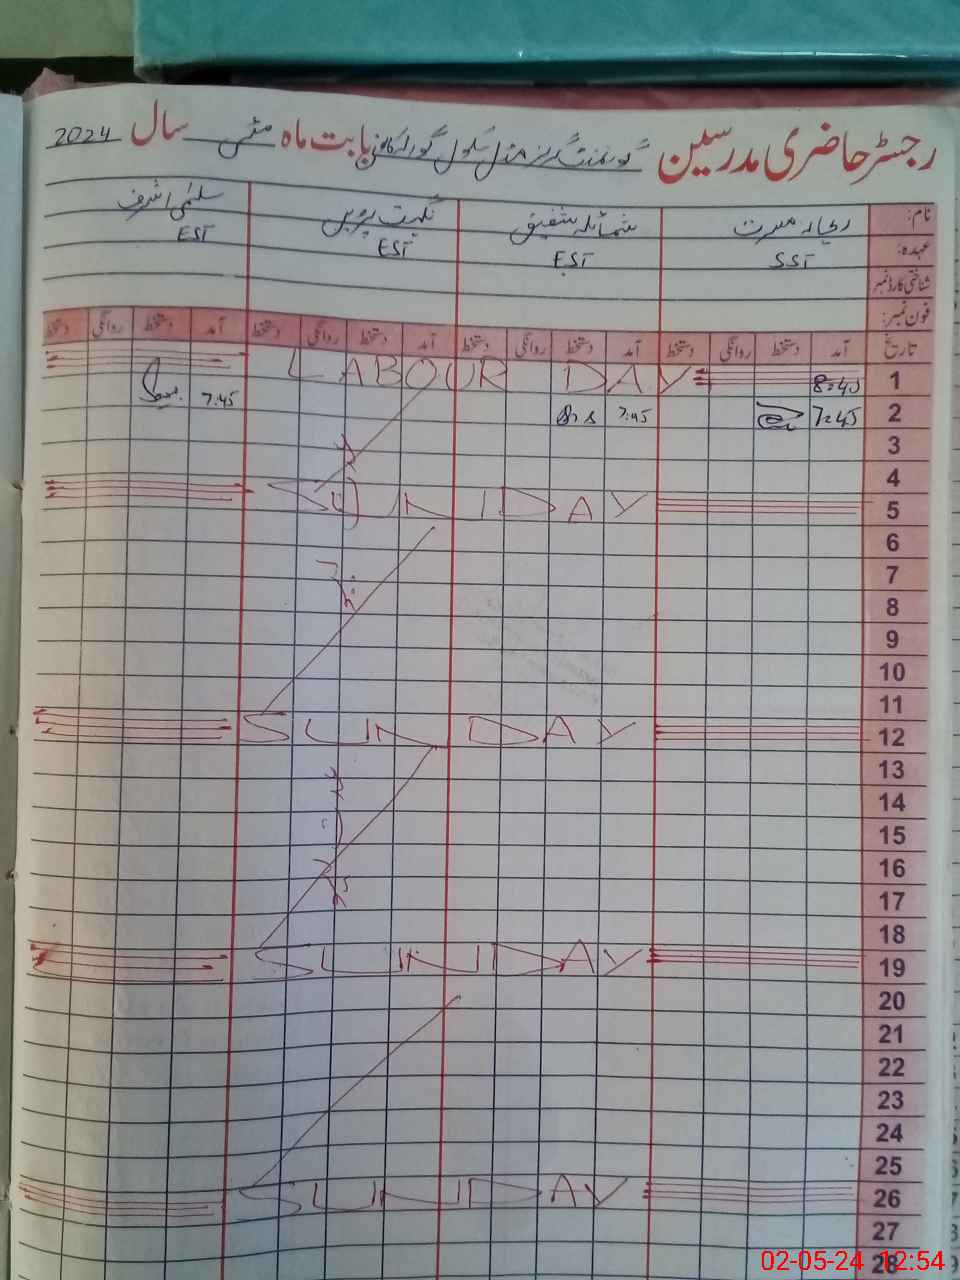 رجسٹر حاضری مدرسین گورنمنٹ گرلز مڈل سکول بابت ماہ مئی سال 2024
نام: شمائلہ شفیق نگہت پروین سلمٰی اشرف
عہدہ: SST EST EST EST
شناختی کارڈ نمبر
فون نمبر:
تاریخ آمد دستخط روانگی دستخط آمد دستخط روانگی دستخط آمد دستخط روانگی دستخط آمد دستخط روانگی دستخط
1 8:45 LABOUR DAY
2 7:45 7:45 7:45
3
4
5 SUNDAY
6
7
8
9
10
11
12 SUNDAY
13
14
15
16
17
18
19 SUNDAY
20
21
22
23
24
25
26 SUNDAY
27
28
02-05-24 12:54